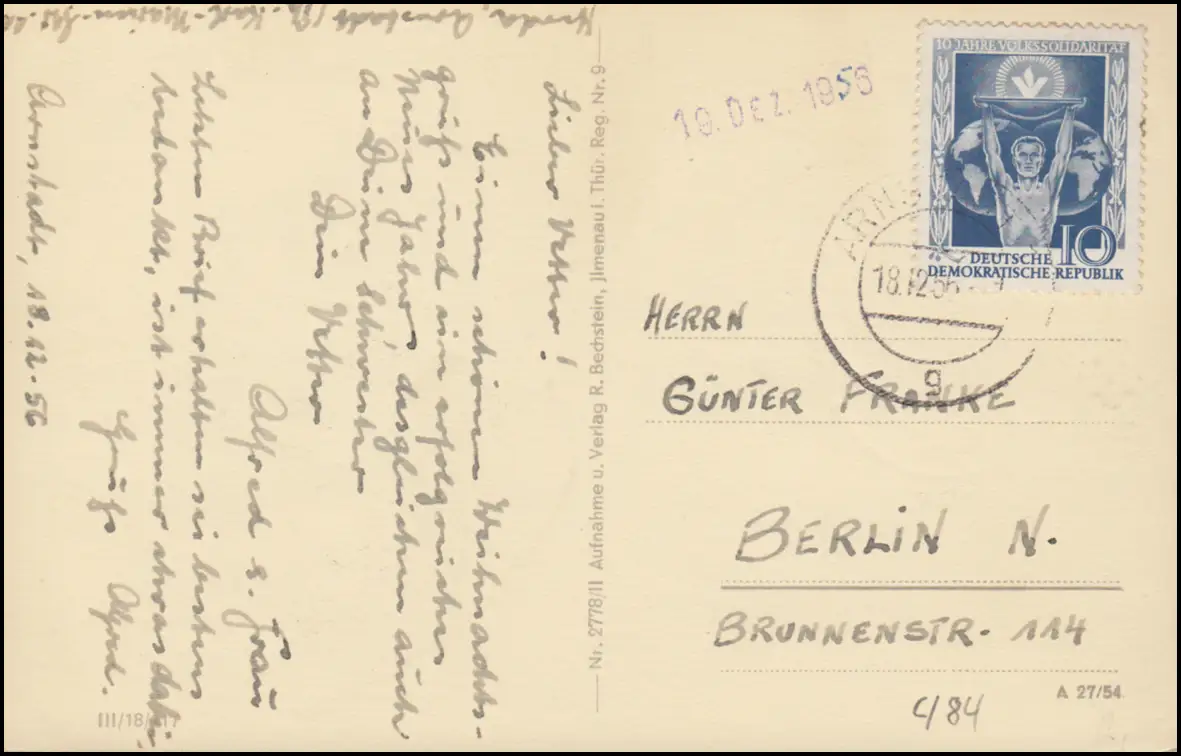 Arnstadt, 18.12.56
Lieber Vetter!
Einen schönen Weihnachts-
gruß und ein erfolgreiches
Neues Jahr, desgleichen auch
an Deine Schwester
Dein Vetter
Alfred u. Frau
Letzten Brief erhalten sei bestens
bedankt, ist immer etwas dabei
Gruß Alfred.
III/18/
Nr. 2778/II Aufnahme u. Verlag R. Bechstein, Jlmenau i. Thür. Reg. Nr. 9
19. DEZ. 1956
10 JAHRE VOLKSSOLIDARITÄT
10
DEUTSCHE
DEMOKRATISCHE REPUBLIK
ARNS
18.12.56
g
HERRN
GÜNTER FRANKE
BERLIN N.
BRUNNENSTR. 114
A 27/54
C/84